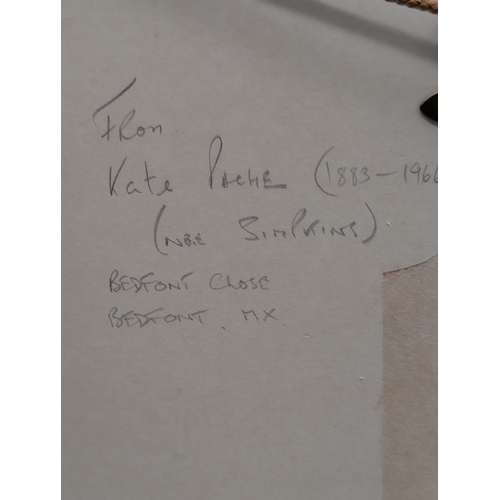 From
Kate PACHE (1883-196
(NEE SIMPKINS)
BEDFONT CLOSE
BEDFONT. MX.